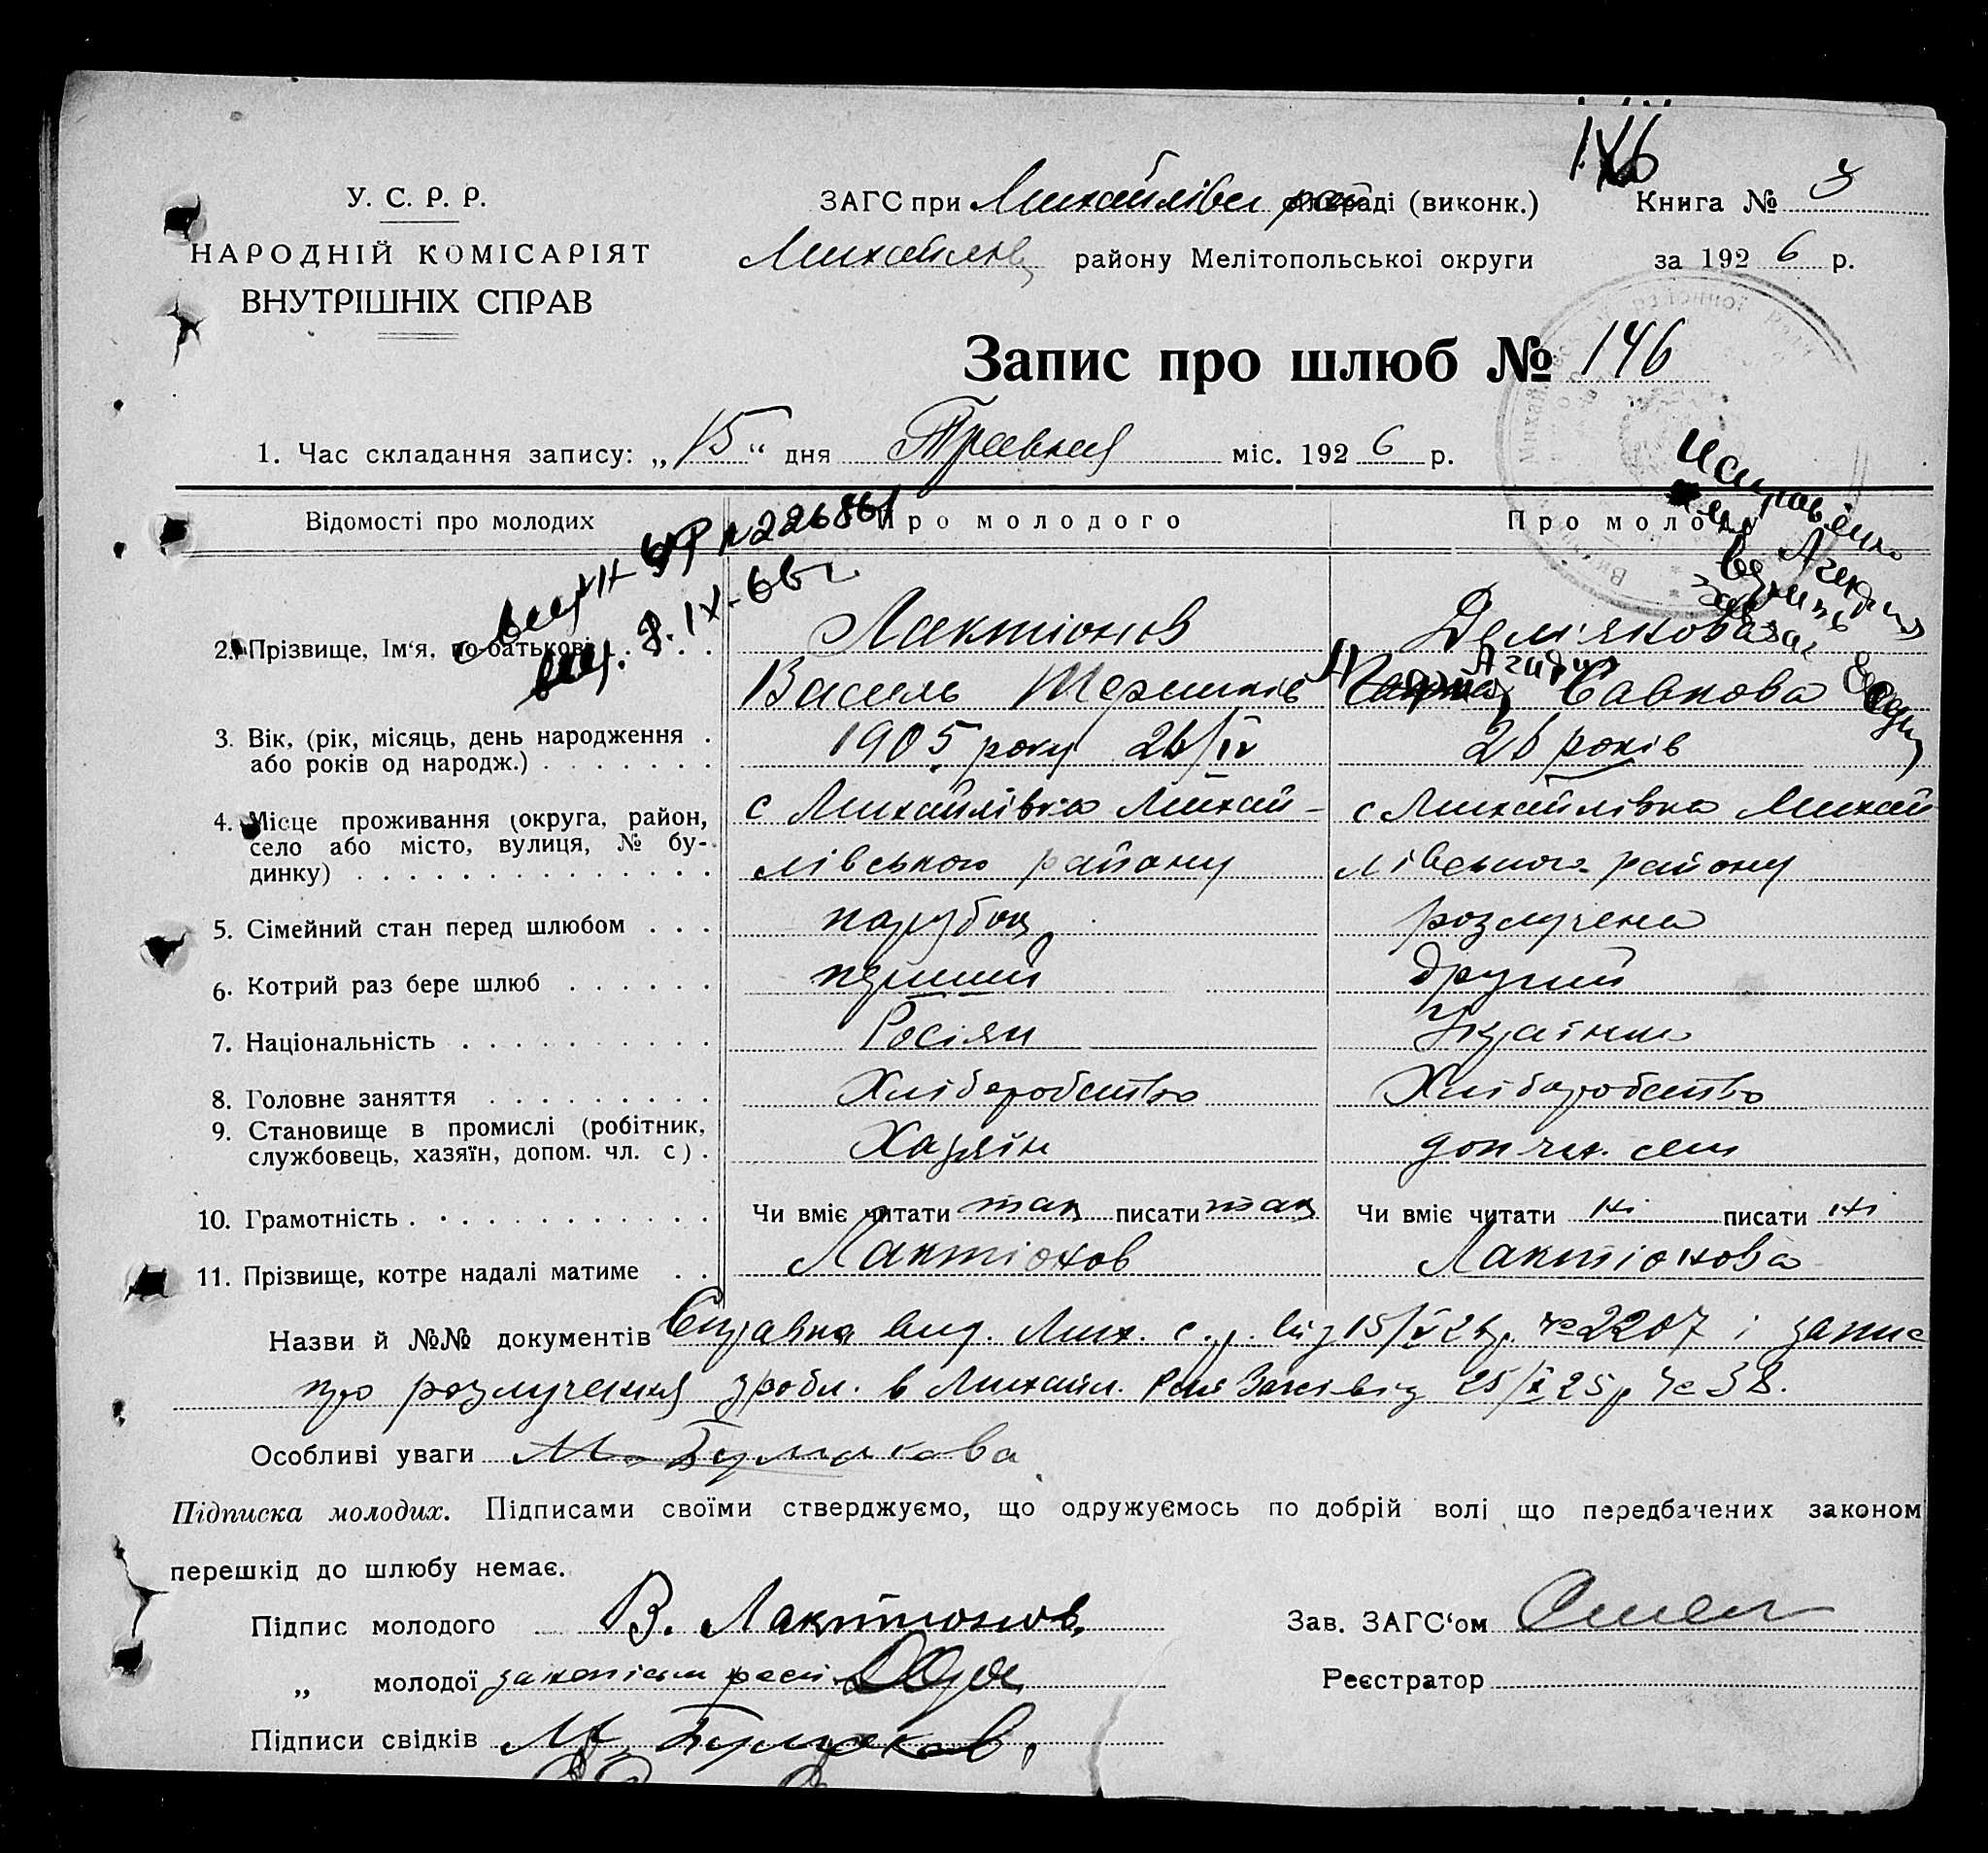 146
У. С. Р. Р.
НАРОДНІЙ КОМІСАРІЯТ
ВНУТРІШНІХ СПРАВ
ЗАГС при Михайлівськ рай раді (виконк.)
Книга № 3
Михайлів району Мелітопольської округи
за 1926 р.
Запис про шлюб № 146
1. Час складання запису: „15“ дня Травня міс. 1926 р.
Відомості про молодих
Про молодого
Про молоду
№ 226861
8. IX-66 г.
2. Прізвище, Ім‘я, по-батькові
Лактіонов
Василь
Дем'янова
Савкова
3. Вік, (рік, місяць, день народження
або років од народж.)
1905 року 26/IV
26 років
4. Місце проживання (округа, район,
село або місто, вулиця, № бу-
динку)
с Михайлівка Михай-
лівського району
с Михайлівка Михай
лівського району
5. Сімейний стан перед шлюбом
парубок
розлучена
6. Котрий раз бере шлюб
перший
другий
7. Національність
Росіян
Українка
8. Головне заняття
Хліборобство
Хліборобство
9. Становище в промислі (робітник,
службовець, хазяїн, допом. чл. с).
Хазяїн
доп чл. сем
10. Грамотність
Чи вміє читати так писати так
Чи вміє читати ні писати ні
11. Прізвище, котре надалі матиме
Лактіонов
Лактіонова
Назви й №№ документів Справка вид. Мих. с.р. від 15/V 26р. № 2207 і запис
про розлучення зробл. в Михайл. Рай Загсі від 25/X 25р № 38.
Особливі уваги
Підписка молодих. Підписами своїми стверджуємо, що одружуємось по добрій волі що передбачених законом
перешкід до шлюбу немає.
Підпис молодого В. Лактионов.
Зав. ЗАГС‘ом
„ молодої
Реєстратор
Підписи свідків